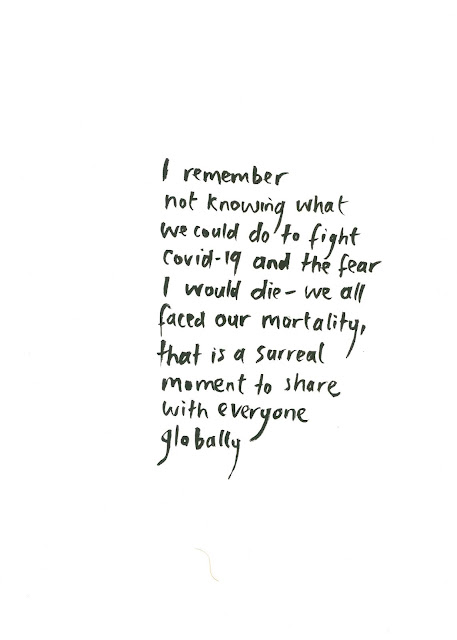 I remember
not knowing what
we could do to fight
covid-19 and the fear
I would die - we all
faced our mortality,
that is a surreal
moment to share
with everyone
globally